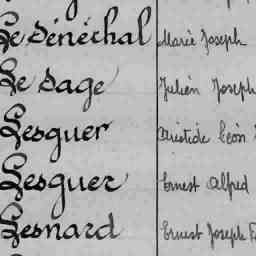 Le Sénéchal Marie Joseph
Le Sage Julien Joseph
Lesguer Aristide Léon
Lesguer Ernest Alfred
Lesnard Ernest Joseph